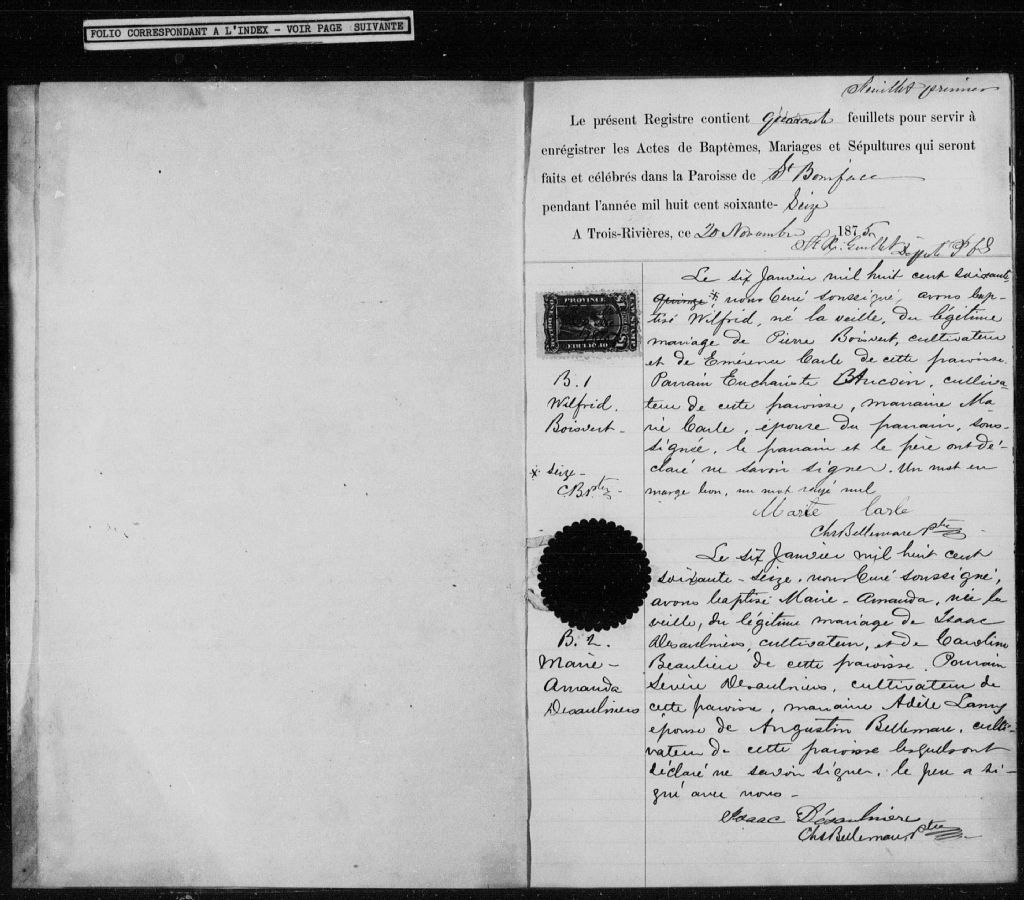 FOLIO CORRESPONDANT A L'INDEX - VOIR PAGE SUIVANTE
Feuillet premier
Le présent Registre contient quarante feuillets pour servir à
enrégistrer les Actes de Baptêmes, Mariages et Sépultures qui seront
faits et célébrés dans la Paroisse de St Boniface
pendant l'année mil huit cent soixante- Seize
A Trois-Rivières, ce 20 Novembre 1875
Guillet Député P C S
PROVINCE
$1
B. 1
Wilfrid.
Boisvert -
* Seize -
CB Ptre -
Le six Janvier mil huit cent soixante
quinze *, nous Curé soussigné, avons bap-
tisé Wilfrid, né la veille, du légitime
mariage de Pierre Boisvert, cultivateur
et de Emérence Carle de cette paroisse.
Parrain Euchariste Aucoin, cultiva-
teur de cette paroisse, marraine Ma-
rie Carle, épouse du parrain, sous-
signée, le parrain et le père ont dé-
claré ne savoir signer. Un mot en
marge bon, un mot rayé nul
Marie Carle
Chs Bellemare Ptre
B. 2.
Marie -
Amanda
Desaulniers
Le six Janvier mil huit cent
soixante - seize, nous Curé soussigné,
avons baptisé Marie - Amanda, née la
veille, du légitime mariage de Isaac
Desaulniers, cultivateur, et de Caroline
Beaulieu de cette paroisse. Parrain
Sévère Desaulniers, cultivateur de
cette paroisse, marraine Adèle Lamy
épouse de Augustin Bellemare, culti-
vateur de cette paroisse lesquels ont
déclaré ne savoir signer, le père a si-
gné avec nous -
Isaac Désaulniers
Chs Bellemare Ptre